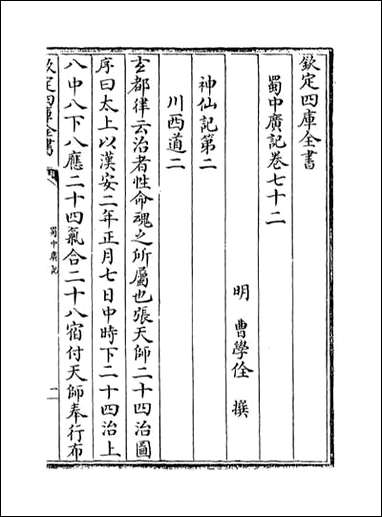 欽定四庫全書
蜀中廣記卷七十二
明 曹學佺 撰
神仙記第二
川西道二
玄都律云治者性命魂之所屬也張天師二十四治圖
序曰太上以漢安二年正月七日中時下二十四治上
八中八下八應二十四氣合二十八宿付天師奉行布
欽定四庫全書
蜀中廣記